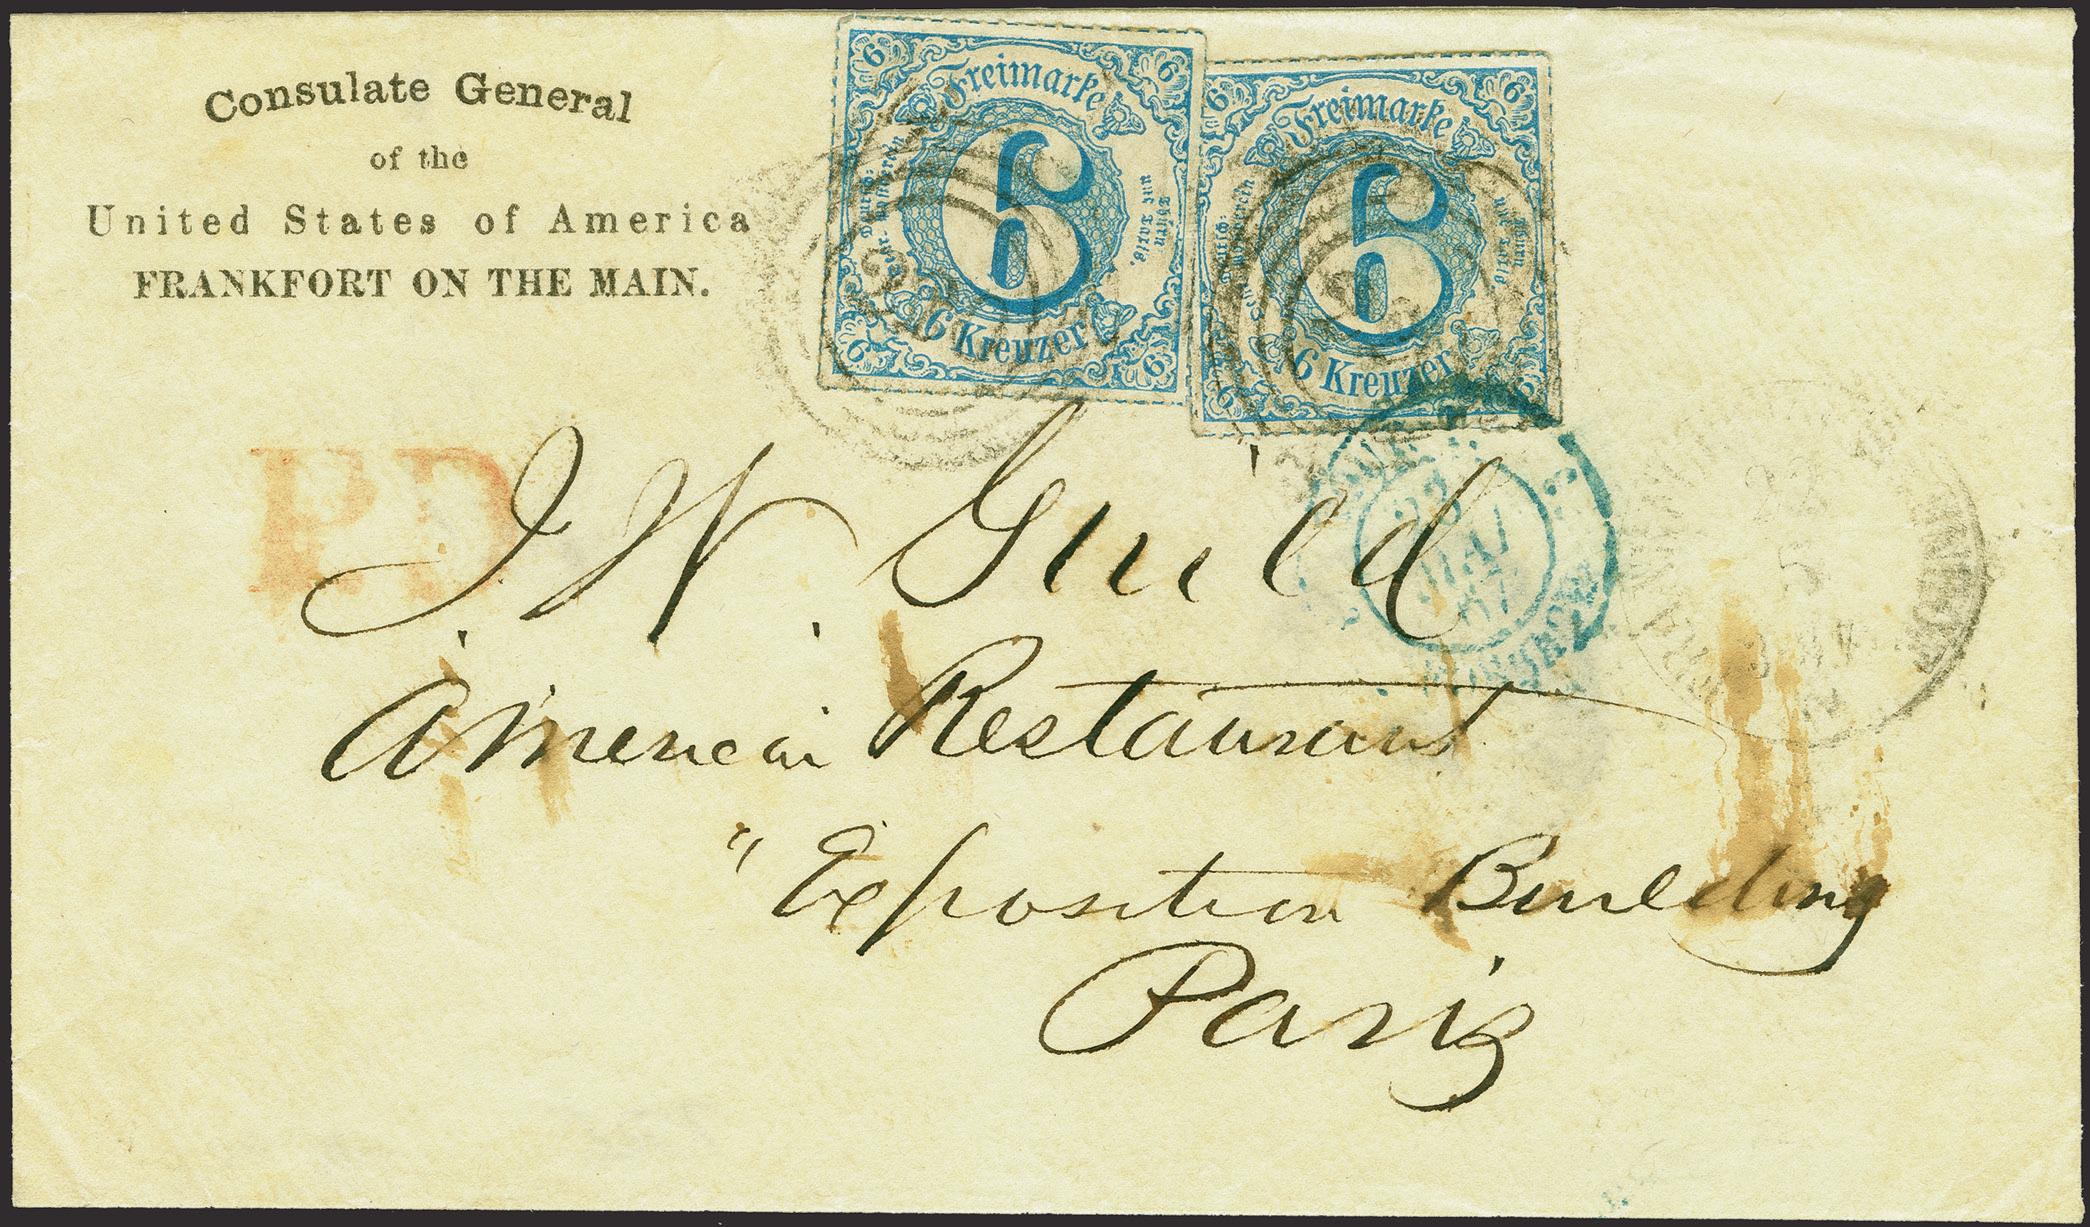 Consulate General
of the
United States of America
FRANKFORT ON THE MAIN.
6 6
Freimarke
6
6 Kreuzer
und Taxis.
6 6
6 6
Freimarke
6
6 Kreuzer
6 6
PD
23
MAI
67
J W Guild
American Restaurant
"Exposition Building
Paris